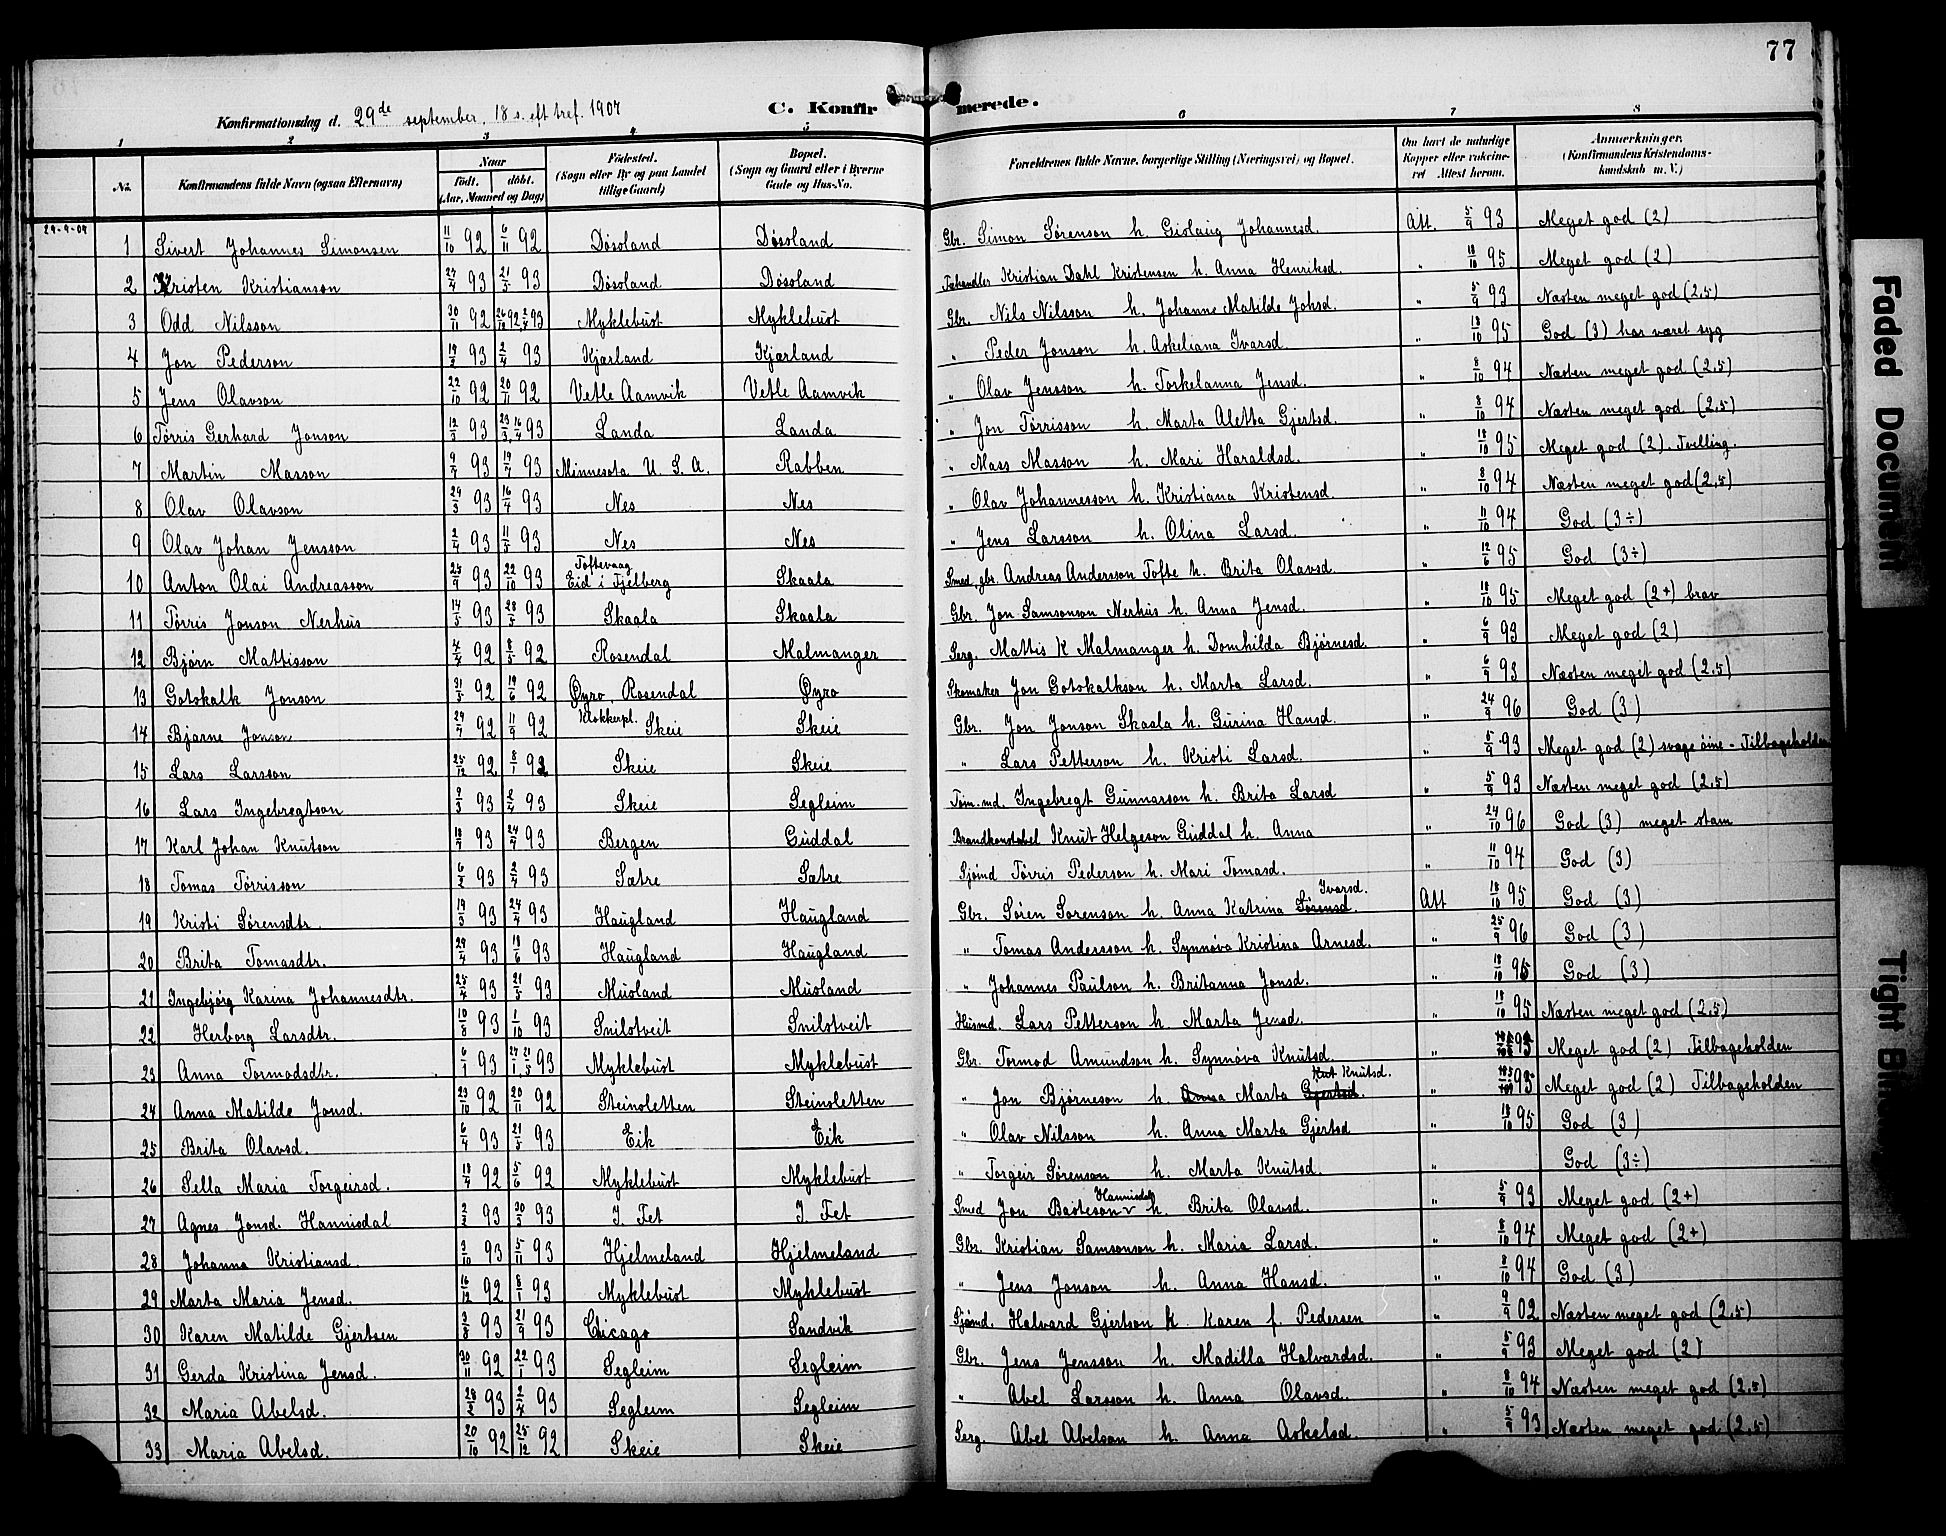 77
C. Konfirmerede.
Konfirmationsdag d. 29de september. 18 s. eft tref. 1907
1 2 3 4 5 6 7 8
No. Konfirmandens fulde Navn (ogsaa Efternavn) Naar Födt. döbt. (Aar, Maaned og Dag) Födested. (Sogn eller By og paa Landet tillige Gaard) Bopæl. (Sogn og Gaard eller i Byerne Gade og Hus-No. Forældrenes fulde Navne, borgerlige Stilling (Næringsvei) og Bopæl. Om havt de naturlige Kopper eller vakcineret Attest herom. Anmærkninger. (Konfirmandens Kristendomskundskab m. V.)
29-9-07
1 Sivert Johannes Simonsen 11/10 92 6/11 92 Døsoland Døsoland Gbr. Simon Sørenson h. Gislaug Johannesd. Att. 5/9 93 Meget god (2)
2 Kristen Kristianson 27/4 93 21/5 93 Døsoland Døsoland Fæhandler Kristian Dahl Kristensen h. Anna Henriksd. " 18/10 95 Meget god (2)
3 Odd Nilsson 30/11 92 26/12 92, 2/4 93 Myklebust Myklebust Gbr. Nils Nilsson h. Johanne Matilde Johsd. " 5/9 93 Næsten meget god (2,5)
4 Jon Pederson 19/2 93 2/4 93 Kjærland Kjærland " Peder Jonson h. Askeliana Ivarsd. " 18/10 95 God (3) har været syg
5 Jens Olavson 22/10 92 20/11 92 Vetle Aamvik Vetle Aamvik " Olav Jensson h. Torkelanna Jensd. " 8/10 94 Næsten meget god (2,5)
6 Tørris Gerhard Jonson 12/3 93 23/3, 16/4 93 Landa Landa " Jon Tørrisson h. Marta Aletta Gjertsd. " 8/10 94 Næsten meget god (2,5)
7 Martin Masson 9/7 93 19/7 93 Minnesota U. S. A. Rabben " Mass Masson h. Mari Haraldsd. " 18/10 95 Meget god (2). Tvelling.
8 Olav Olavson 24/3 93 16/4 93 Nes Nes " Olav Johannesson h. Kristiana Kristensd. " 8/10 94 Næsten meget god (2,5)
9 Olav Johan Jensson 2/4 93 11/5 93 Nes Nes " Jens Larsson h. Olina Larsd. " 11/10 94 God (3÷)
10 Anton Olai Andreasson 24/9 93 22/10 93 Toftevaag Eid i Fjelberg Skaala Smed, gbr. Andreas Andersson Tofte h. Brita Olavsd. " 12/6 95 God (3÷)
11 Tørris Jonson Nerhus 14/5 93 28/5 93 Skaala Skaala Gbr. Jon Samsonson Nerhus h. Anna Jensd. " 18/10 95 Meget god (2+) brav
12 Bjørn Mattisson 4/4 92 8/5 92 Rosendal Malmanger Serg. Mattis K Malmanger h. Domhilda Bjørnesd. " 6/9 93 Meget god (2)
13 Gotskalk Jonson 31/5 92 19/6 92 Øyro, Rosendal Øyro Skomaker Jon Gotskalkson h. Marta Larsd. " 6/9 93 Næsten meget god (2,5)
14 Bjarne Jonson 29/7 92 11/9 92 Klokkerpl. Skeie Skeie Gbr. Jon Jonson Skaala h. Gurina Hansd. " 24/9 96 God (3)
15 Lars Larsson 25/12 92 8/1 92 Skeie Skeie " Lars Petterson h. Kristi Larsd. " 5/9 93 Meget god (2) svage öine - Tilbageholden
16 Lars Ingebregtson 9/3 93 2/4 93 Skeie Segleim Tøm.md. Ingebregt Gunnarson h. Brita Larsd " 5/9 93 Næsten meget god (2,5)
17 Karl Johan Knutson 18/7 93 24/7 93 Bergen Guddal Brandkonstabel Knut Helgeson Guddal h. Anna " 24/10 96 God (3) meget stam
18 Tomas Tørrisson 6/2 93 2/4 93 Sætre Sætre Sjømd Tørris Pederson h. Mari Tomasd. " 11/10 94 God (3)
19 Kristi Sørensdtr. 19/3 93 24/4 93 Haugland Haugland Gbr. Søren Sørenson h. Anna Katrina Sørensd. Ivarsd. Att 18/10 95 God (3)
20 Brita Tomasdtr. 29/4 93 18/6 93 Haugland Haugland " Tomas Andersson h. Synnøva Kristina Arnesd. " 25/9 96 God (3)
21 Ingebjørg Karina Johannesdtr. 25/4 93 21/5 93 Musland Musland " Johannes Paulson h. Britanna Jonsd. " 18/10 95 God (3)
22 Herborg Larsdtr. 10/8 93 1/10 93 Snilstveit Snilstveit Husmd. Lars Petterson h. Marta Jensd. " 18/10 95 Næsten meget god (2,5)
23 Anna Tormodsdtr. 6/1 93 27/1, 21/5 93 Myklebust Myklebust Gbr. Tormod Amundson h. Synnøva Knutsd. " 93 Meget god (2) Tilbageholden
24 Anna Matilde Jonsd. 23/10 92 20/11 92 Steinsletten Steinsletten " Jon Bjørneson h. Anna Marta Gjertsd. Knutsd. " 93 Meget god (2) Tilbageholden
25 Brita Olavsd. 6/4 93 21/5 93 Eik Eik " Olav Nilsson h. Anna Marta Gjertsd " 18/10 95 God (3)
26 Sella Maria Torgeirsd. 18/4 92 5/6 92 Myklebust Myklebust " Torgeir Sørenson h. Marta Knutsd. " God (3÷)
27 Agnes Jonsd. Hannisdal 2/3 93 30/3 93 I. Fet I. Fet Smed Jon Basteson Hannisdal h. Brita Olavsd. " 5/9 93 Meget god (2+)
28 Johanna Kristiansd. 3/10 93 5/11 93 Hjelmeland Hjelmeland Gbr. Kristian Samsonson h. Maria Larsd. " 8/10 94 Meget god (2+)
29 Marta Maria Jensd. 16/12 92 8/1 93 Myklebust Myklebust " Jens Jonson h. Anna Hansd. " 8/10 94 God (3)
30 Karen Matilde Gjertsen 3/8 93 21/9 93 Chicago Sandvik Sjömd. Halvard Gjertson h. Karen f. Pedersen " 9/9 02 Næsten meget god (2,5)
31 Gerda Kristina Jensd. 30/11 92 22/1 93 Segleim Segleim Gbr. Jens Jensson h. Madilla Halvardsd. " 5/9 93 Meget god (2)
32 Maria Abelsd. 28/2 93 2/4 93 Segleim Segleim " Abel Larsson h. Anna Olavsd. " 8/10 94 Næsten meget god (2,5)
33 Maria Abelsd. 20/10 92 25/12 92 Skeie Skeie Serg. Abel Abelson h. Anna Askelsd. " 5/9 93 Næsten meget god (2,5)
Faded Document
Tight